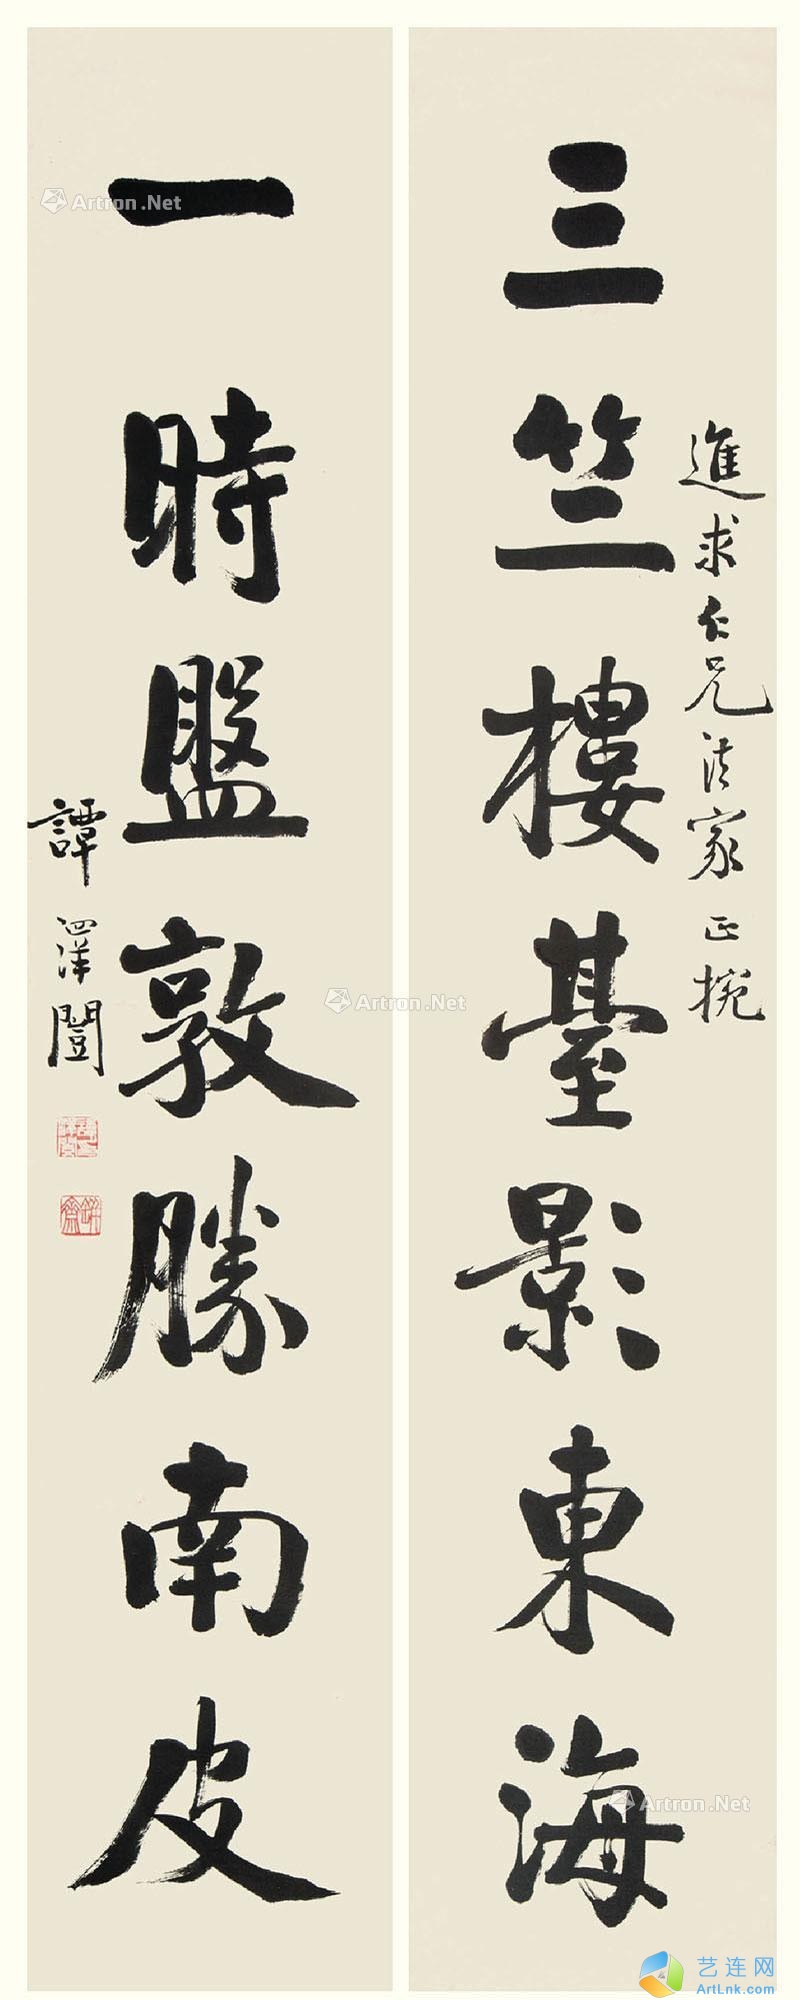 三竺樓臺影東海
進求仁兄法家正捥
一時盤敦勝南皮
譚澤闓
Artron.Net
Artron.Net
Artron.Net
艺连网
ArtLnk.com